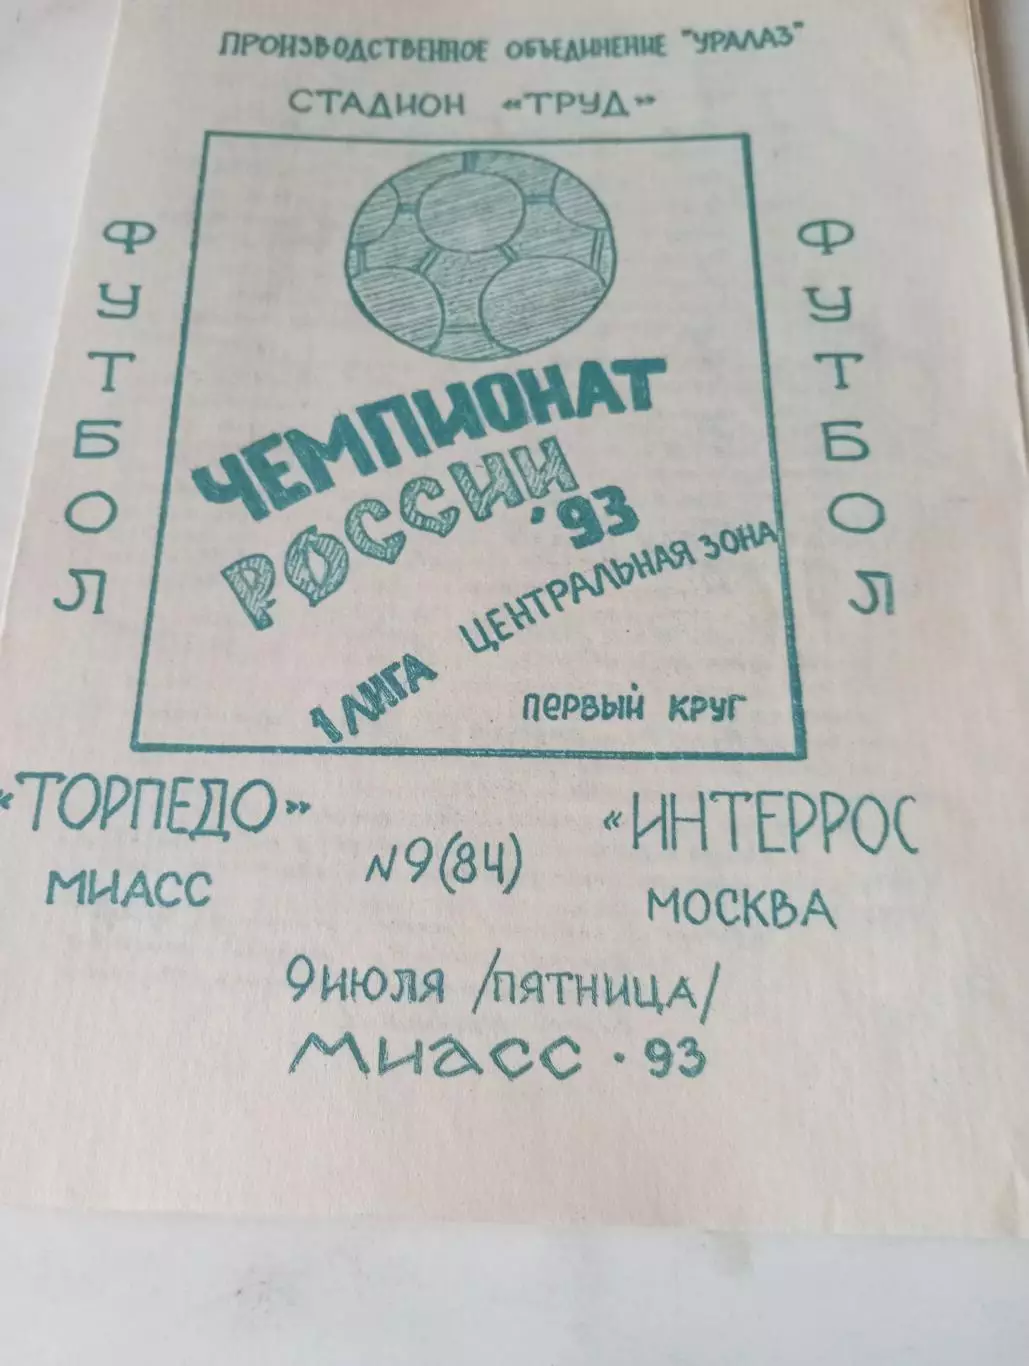 ПРОИЗВОДСТВЕННОЕ ОБЪЕДИНЕНИЕ "УРАЛАЗ"
СТАДИОН «ТРУД»
ФУТБОЛ
ЧЕМПИОНАТ
РОССИИ
'93
1 ЛИГА ЦЕНТРАЛЬНАЯ ЗОНА
ПЕРВЫЙ КРУГ
ФУТБОЛ
«ТОРПЕДО»
МИАСС
N9(84)
«ИНТЕРРОС
МОСКВА
9 ИЮЛЯ /ПЯТНИЦА/
МИАСС · 93